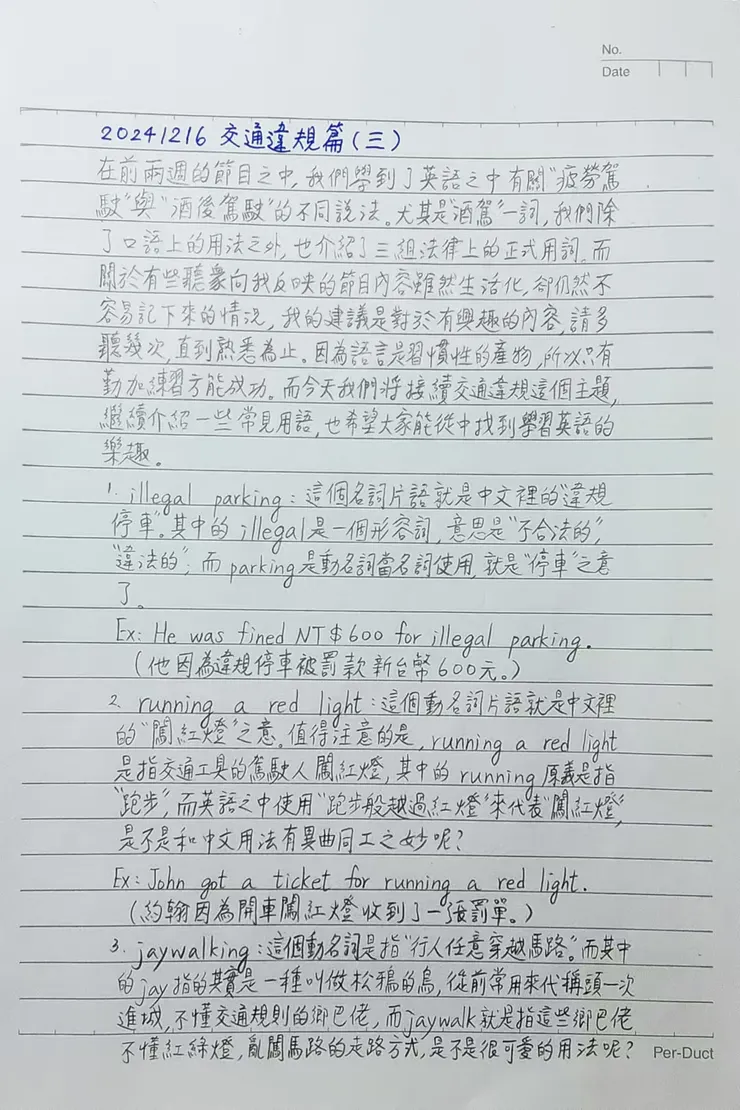 No.
Date
20241216 交通違規篇(三)
在前兩週的節目之中, 我們學到了英語之中有關"疲勞駕
駛"與"酒後駕駛"的不同說法。尤其是"酒駕"一詞, 我們除
了口語上的用法之外, 也介紹了三組法律上的正式用詞. 而
關於有些聽衆向我反映的節目內容雖然生活化, 卻仍然不
容易記下來的情況, 我的建議是對於有興趣的內容, 請多
聽幾次, 直到熟悉為止。因為語言是習慣性的產物, 所以只有
勤加練習方能成功。而今天我們將接續交通違規這個主題,
繼續介紹一些常見用語, 也希望大家能從中找到學習英語的
樂趣。
1. illegal parking: 這個名詞片語就是中文裡的"違規
停車"。其中的 illegal 是一個形容詞, 意思是"不合法的",
"違法的"; 而 parking 是動名詞當名詞使用, 就是"停車"之意
了。
Ex: He was fined NT$600 for illegal parking.
(他因為違規停車被罰款新台幣600元。)
2. running a red light: 這個動名詞片語就是中文裡
的"闖紅燈"之意。值得注意的是, running a red light
是指交通工具的駕駛人闖紅燈, 其中的 running 原義是指
"跑步", 而英語之中使用"跑步般越過紅燈"來代表"闖紅燈",
是不是和中文用法有異曲同工之妙呢?
Ex: John got a ticket for running a red light.
(約翰因為開車闖紅燈收到了一張罰單。)
3. jaywalking: 這個動名詞是指"行人任意穿越馬路"。而其中
的 jay 指的其實是一種叫做松鴉的鳥, 從前常用來代稱頭一次
進城, 不懂交通規則的鄉巴佬, 而 jaywalk 就是指這些鄉巴佬
不懂紅綠燈, 亂闖馬路的走路方式, 是不是很可愛的用法呢?
Per-Duct